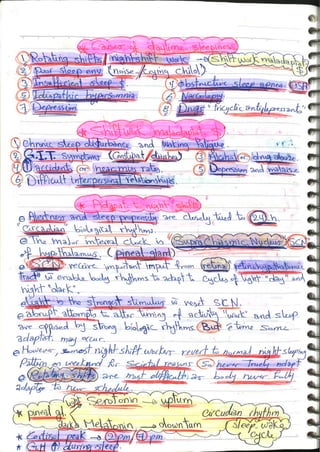 * Causes of daytime sleepiness
① Rotating shifts / nightshift work → (Shift work maladaptat $)
② Poor sleep env (noise / crying child)
③ Insufficient sleep $ ④ obstructive sleep apnea OSA
⑤ Idiopathic hypersomnia ⑥ Narcolepsy
⑦ Depression ⑧ Drugs "tricyclic antidepressants"
* Shift work maladaptat $
① Chronic sleep disturbance and waking fatigue
② G.I.T. symptoms (Constipat / diarrhea) ③ Alcohol or drug abuse
④ ↑ accidents or near miss rates. ⑤ Depression and malaise
⑥ Difficult interpersonal relationships.
* Adaptat night shift
Alertness and sleep propensity are closely tied to 24h.
"Circadian" biological rhythms.
The major internal clock is Supra Chiasmic Nucleus SCN
of hypothalamus. (pineal gland)
SCN receive important input from retina retinohypothalamic
tract to enable body rhythms to adapt to cycles of light "day" and
night "dark".
Light is the strongest stimulus to reset SCN.
abrupt attempts to alter timing of activity "work" and sleep
are opposed by strong biologic rhythms But time some
adaptat. may occur.
However, most night shift worker revert to normal night sleeping
Pattern on weekend for Societal reasons So never Truly adapt
Rotating shifts are most difficult as body never Fully
adaptes to new schedule.
Serotonin → uptum
* pineal gl. Circadian rhythm
dark Melatonin → downtum sleep, wake
cycle
* Cortisol peak → 2pm / 9pm
* GH ↑ during sleep.